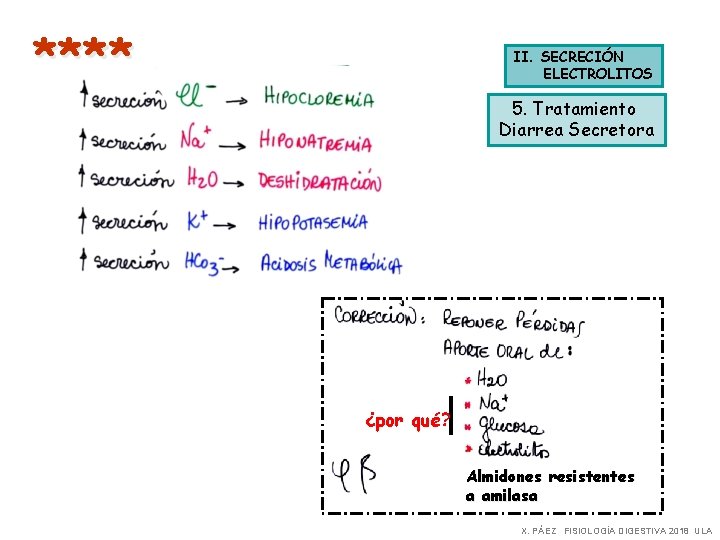 ****
II. SECRECIÓN
ELECTROLITOS
5. Tratamiento
Diarrea Secretora
↑ secreción Cl⁻ → HIPOCLOREMIA
↑ secreción Na⁺ → HIPONATREMIA
↑ secreción H2O → DESHIDRATACIÓN
↑ secreción K⁺ → HIPOPOTASEMIA
↑ secreción HCO3⁻ → ACIDOSIS METABÓLICA
CORRECCIÓN: REPONER PÉRDIDAS
APORTE ORAL de:
* H2O
* Na⁺
¿por qué?
* glucosa
* electrolitos
Almidones resistentes
a amilasa
X. PÁEZ FISIOLOGÍA DIGESTIVA 2018 ULA